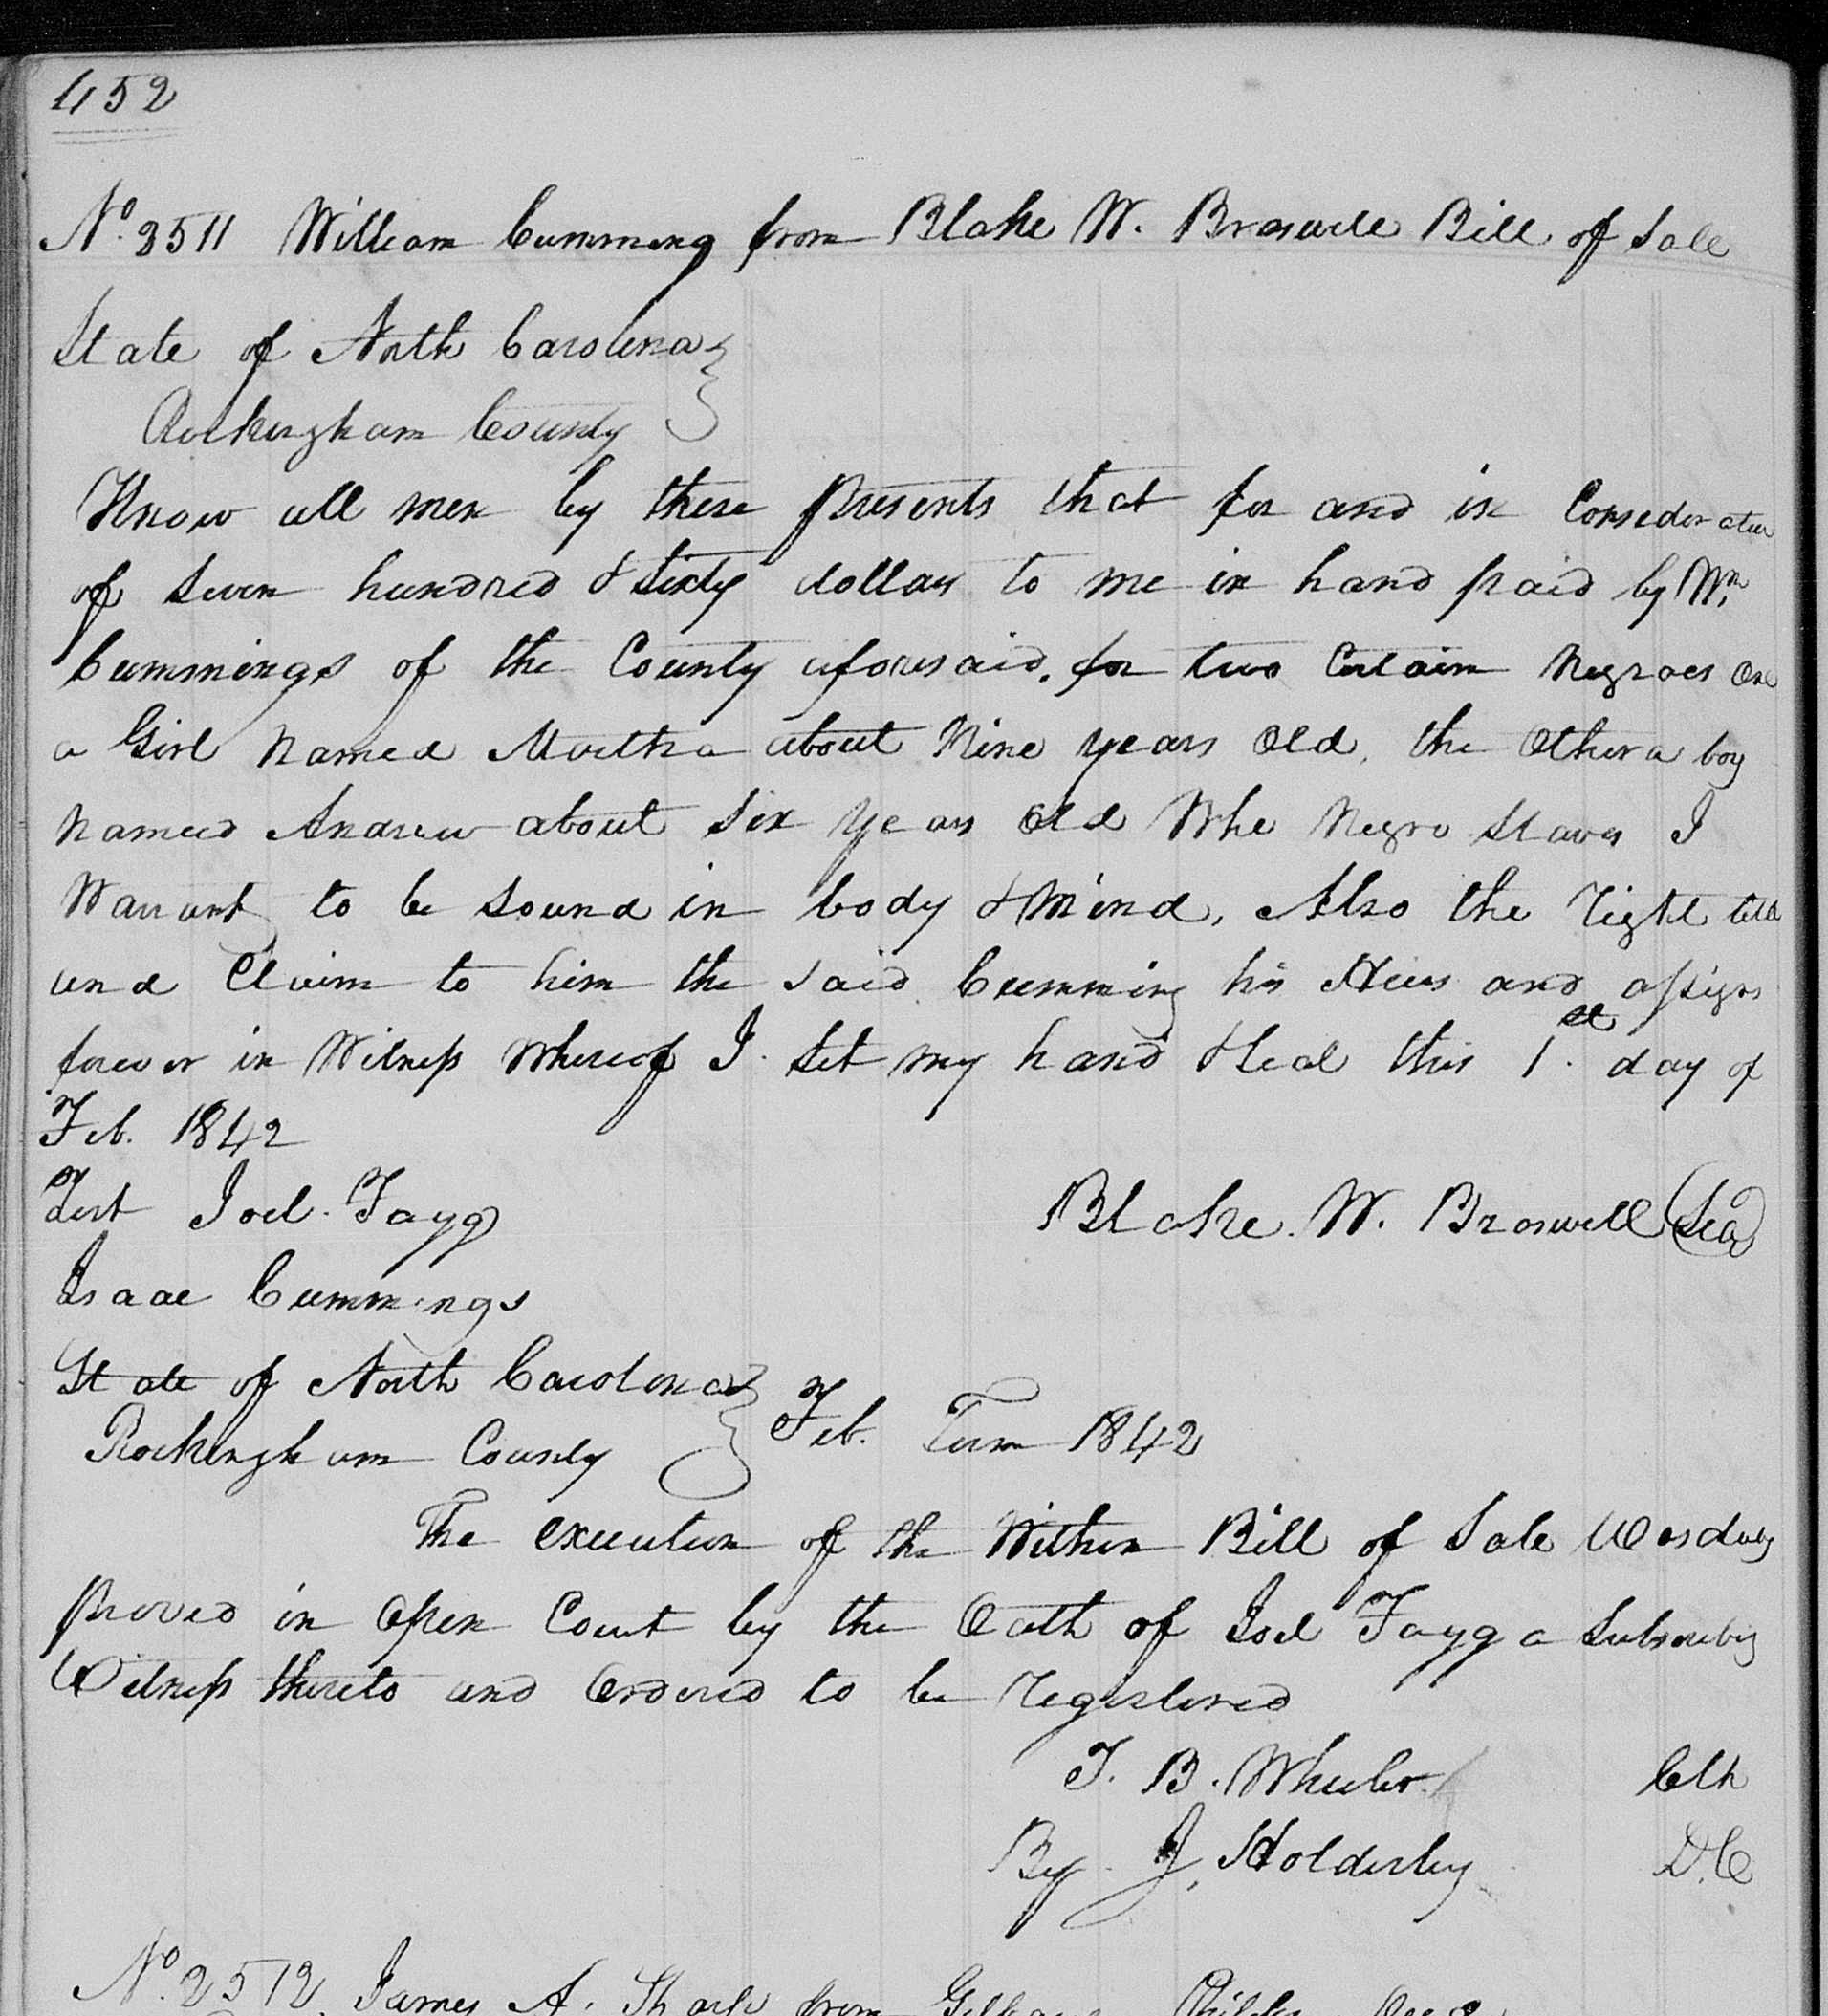 452
No. 2511 William Cumming from Blake W. Braswell Bill of Sale
State of North Carolina
Rockingham County
Know all men by these presents that for and in Consideration
of Seven hundred & Sixty dollars to me in hand paid by Wm.
Cummings of the County aforesaid. for two Certain Negroes One
a Girl Named Martha about Nine years Old, the Other a boy
named Andrew about Six years Old Whe Negro Slaves I
Warrant to be Sound in body & Mind, Also the Right title
and Claim to him the Said Cumming his Heirs and assigns
forever in Witness Whereof I. Set my hand & Seal this 1.st day of
Feb. 1842
Test Joel. Fagg
Blake. W. Braswell (Seal)
Isaac Cummings
State of North Carolina
Feb. Term 1842
Rockingham County
The execution of the Within Bill of Sale Was duly
proved in Open Court by the Oath of Joel Fagg a Subscribing
Witness thereto and Ordered to be Registered
T. B. Wheeler Clk
By J. Holderby D.C
No. 2512 James A. from